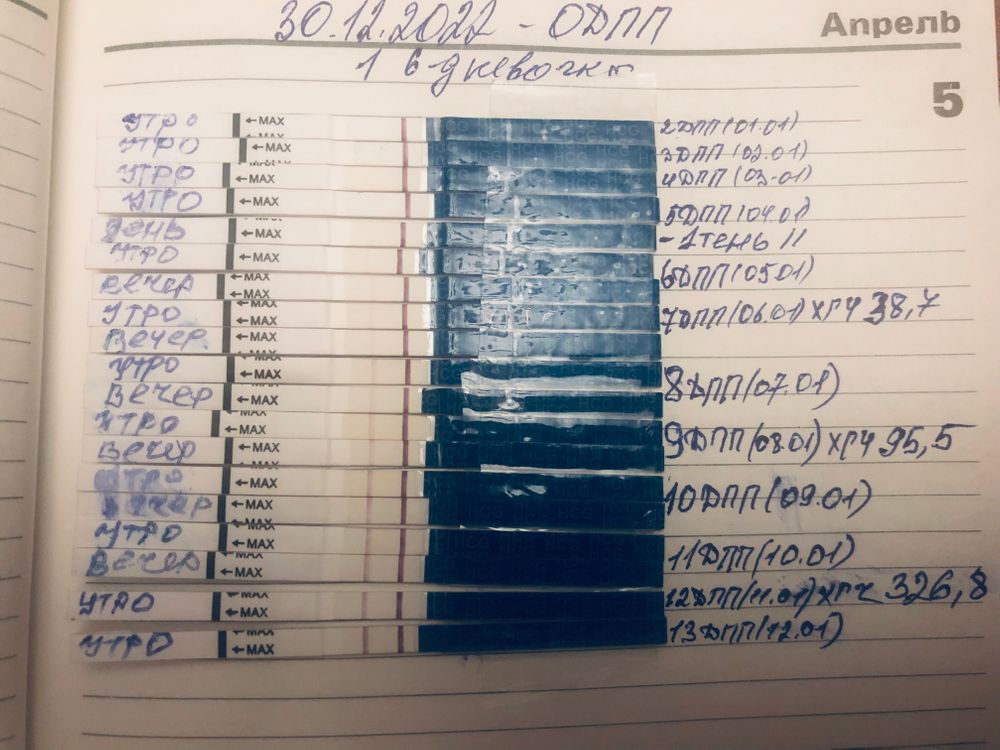 Апрель
5
30.12.2022 - ОДПП
1 6 дневочка
УТРО ←MAX HCG 2ДПП(01.01)
УТРО ←MAX HCG 3ДПП(02.01)
УТРО ←MAX HCG 4ДПП(03.01)
УТРО ←MAX 5ДПП(04.01)
День ←MAX - 1 тень !!
УТРО ←MAX 6ДПП(05.01)
вечер ←MAX
УТРО ←MAX 7ДПП(06.01) ХГЧ 38,7
Вечер ←MAX
УТРО ←MAX 8ДПП(07.01)
Вечер ←MAX
УТРО ←MAX 9ДПП(08.01) ХГЧ 95,5
Вечер ←MAX
УТРО ←MAX 10ДПП(09.01)
Вечер ←MAX
УТРО ←MAX 11ДПП(10.01)
Вечер ←MAX
УТРО ←MAX 12ДПП(11.01) ХГЧ 326,8
УТРО ←MAX 13ДПП(12.01)